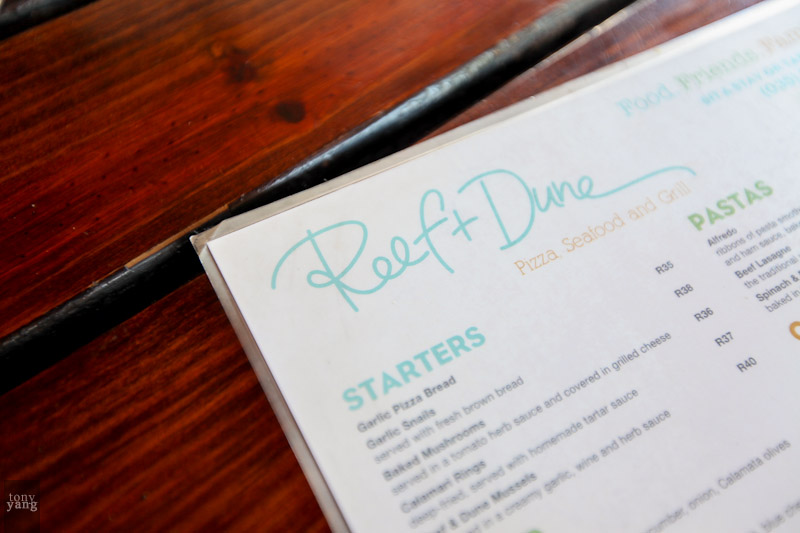 Food Friends
Reef + Dune
Pizza, Seafood and Grill
STARTERS
Garlic Pizza Bread R35
Garlic Snails R38
served with fresh brown bread
Baked Mushrooms R36
served in a tomato herb sauce and covered in grilled cheese
Calamari Rings R37
deep-fried, served with homemade tartar sauce
& Dune Mussels R40
in a creamy garlic, wine and herb sauce
onion, Calamata olives
PASTAS
Alfredo
ribbons of pasta
and ham sauce,
Beef Lasagne
the traditional
Spinach &
baked in
tony
yang